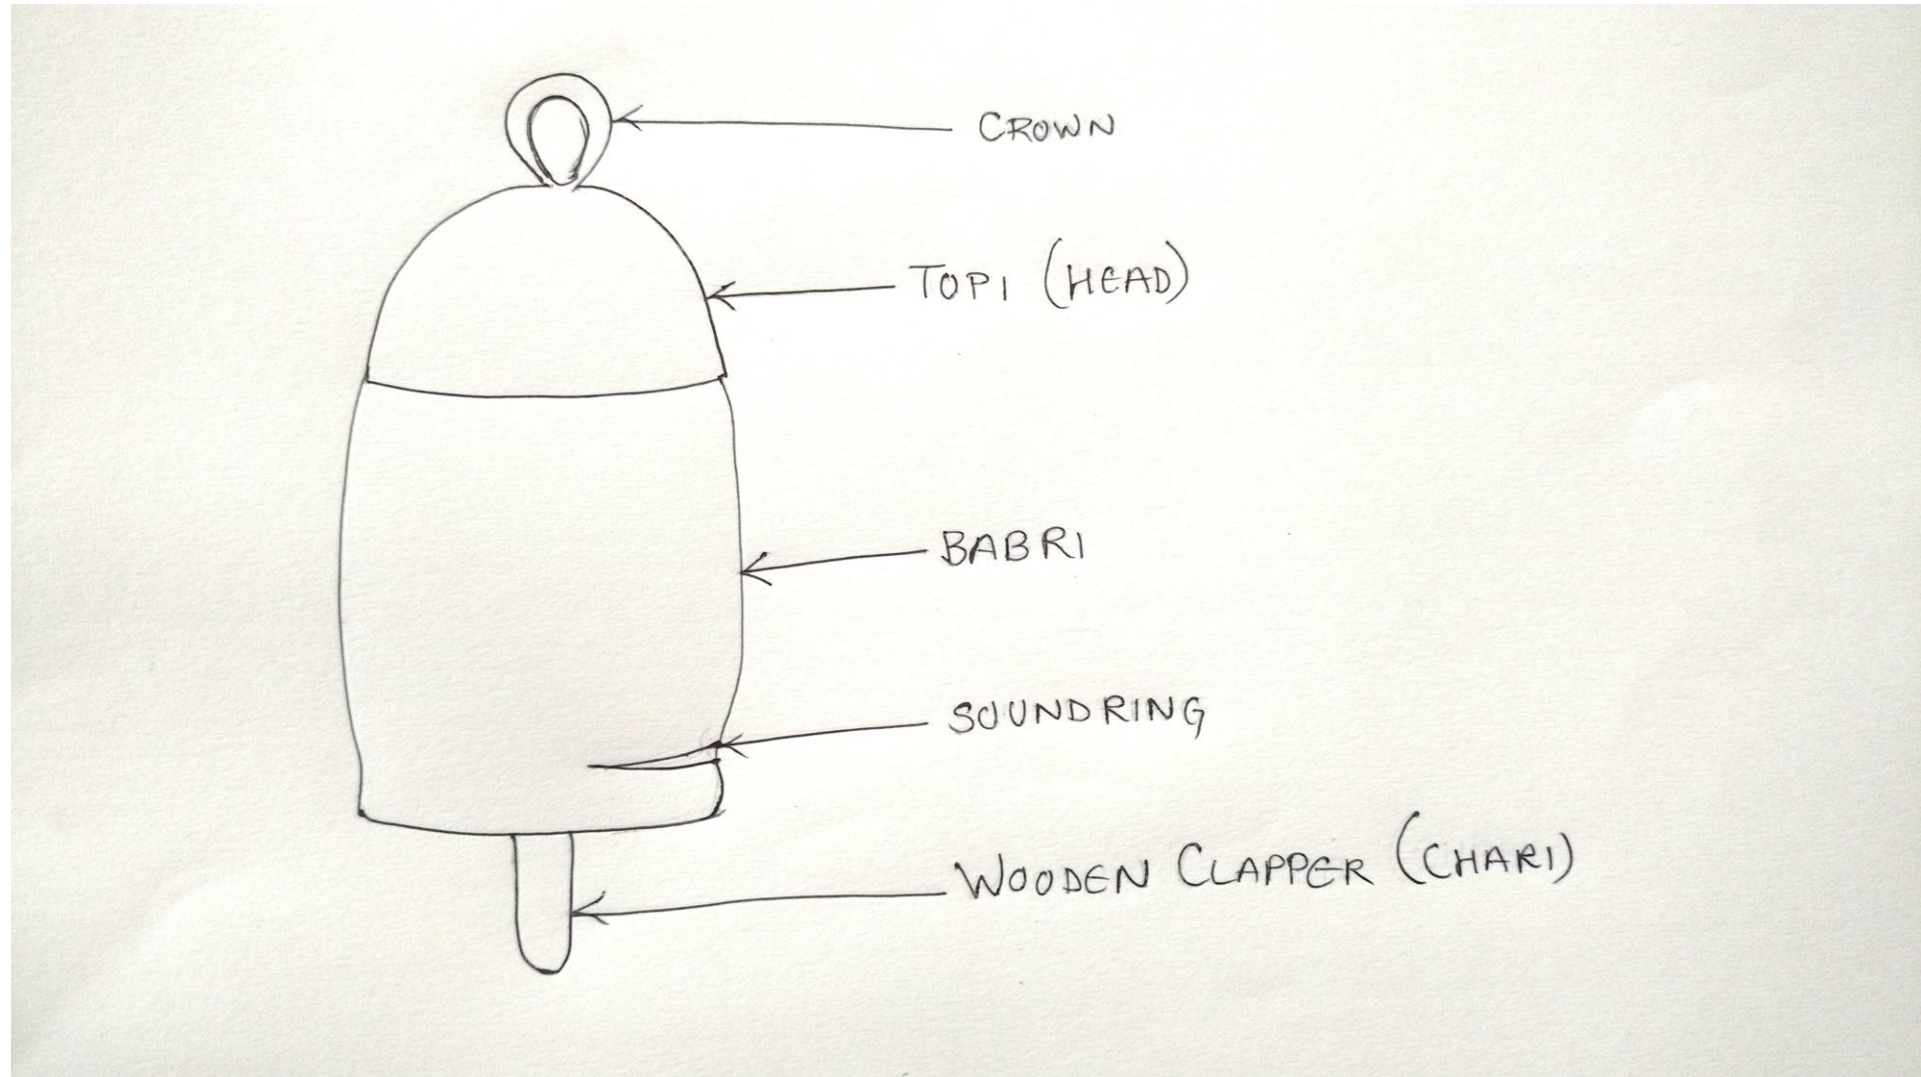 CROWN
TOPI (HEAD)
BABRI
SOUNDRING
WOODEN CLAPPER (CHARI)